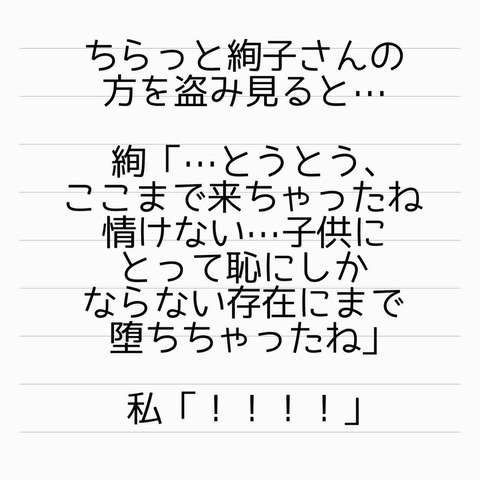 ちらっと絢子さんの
方を盗み見ると…
絢「…とうとう、
ここまで来ちゃったね
情けない…子供に
とって恥にしか
ならない存在にまで
堕ちちゃったね」
私「！！！！」